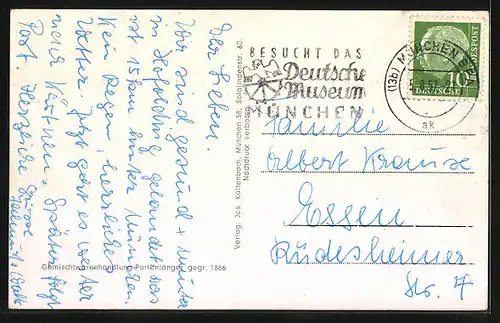 Ihr Lieben.
Wir sind gesund + munter
in gelandet das
ist 15 km hinter München.
Kein Regen, herrliches
Wetter. Jetzt geht es weiter
nach Kärnten. Später folgt
Post. Herzliche Grüsse
Helmut +
Gemischtwarenhandlung Partheianger, gegr. 1866
Verlag: Jos. Kaltenbach, München 58, Sonnlindenstr. 60
Nachdruck verboten
BESUCHT DAS
Deutsche
Museum
MÜNCHEN
(13b) MÜNCHEN
ak
10
DEUTSCHE
BUNDESPOST
Familie
Albert Krause
Essen
Rüdesheimer
Str. 7